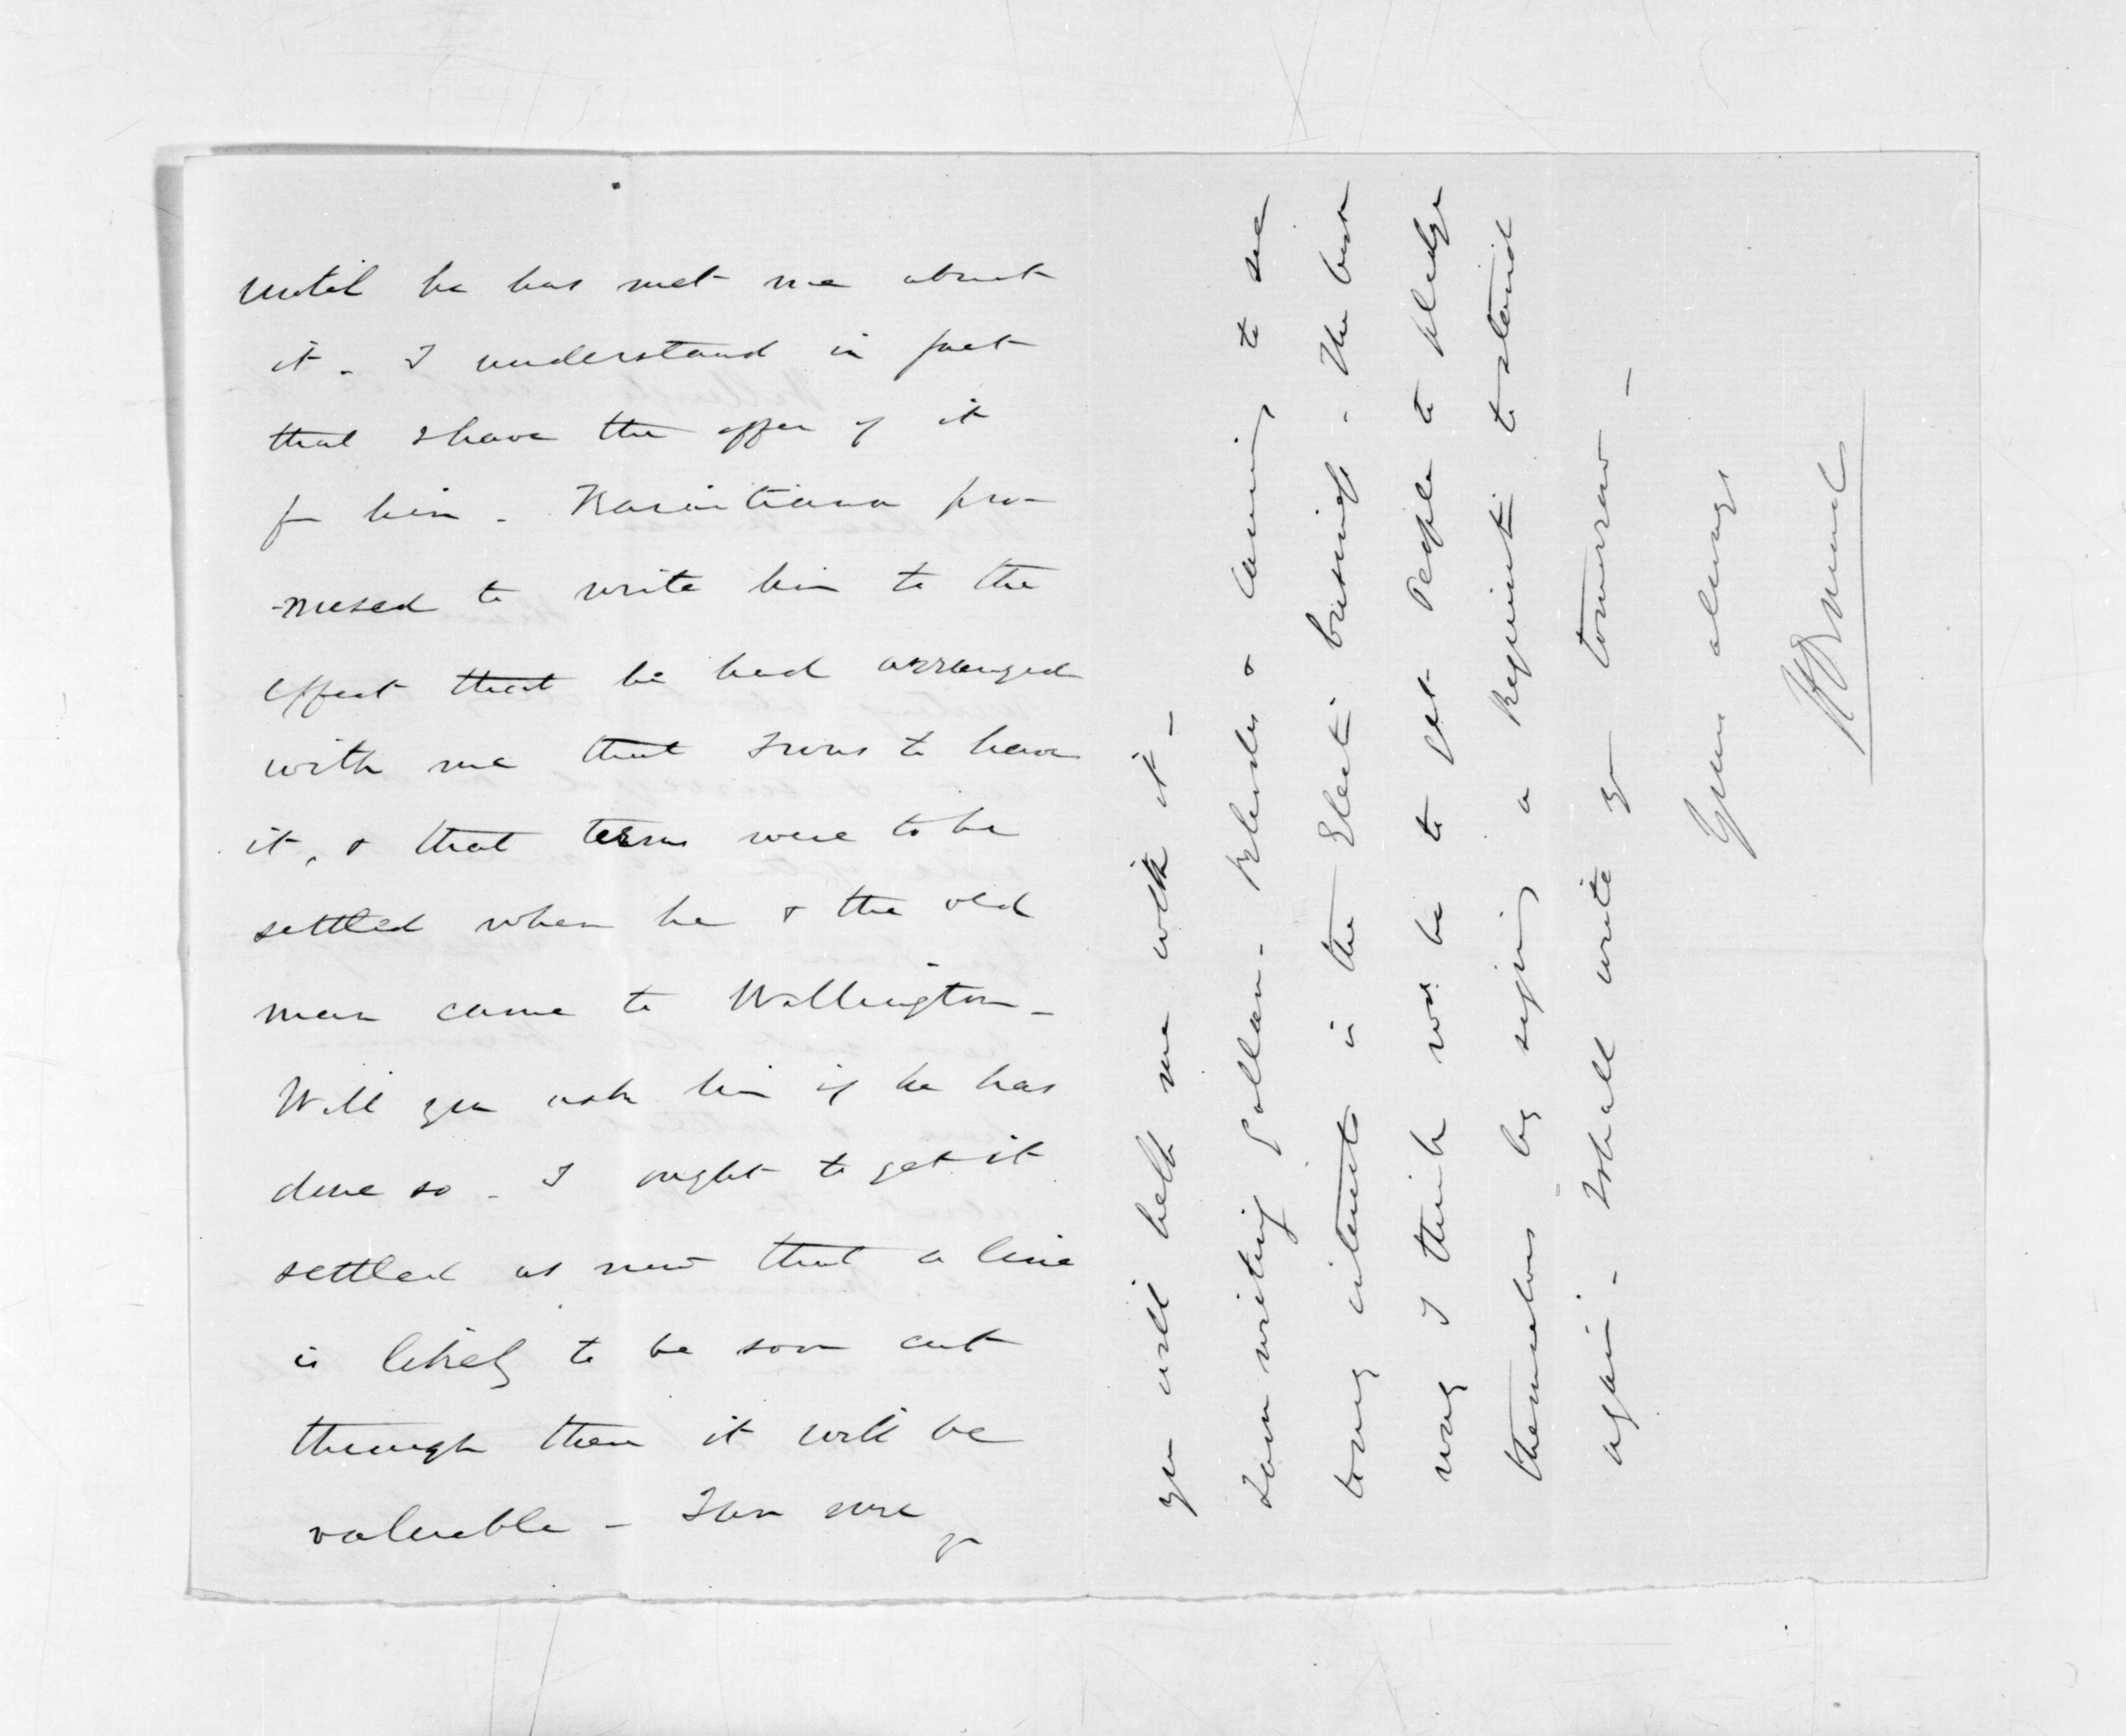 until he has met me about
it. I understand in fact
that I have the offer of it
fm him - Karaitiana pro-
-mised to write him to the
effect that he had arranged
with me that I was to have
it, & that terms were to be
settled when he & the old
man came to Wellington -
Will you ask him if he has
done so - I ought to get it
settled as now that a line
is likely to be soon cut
through then it will be
valuable - I am sure
yr
you will help me with it -
I am writing Gollan - Rhodes & Canning to see
town interests in the Electn. business. The best
way I think wd. be to get People to pledge
themselves by signing a Requisitn. to stand
again - I shall write yr tomorrow -
Yrs always